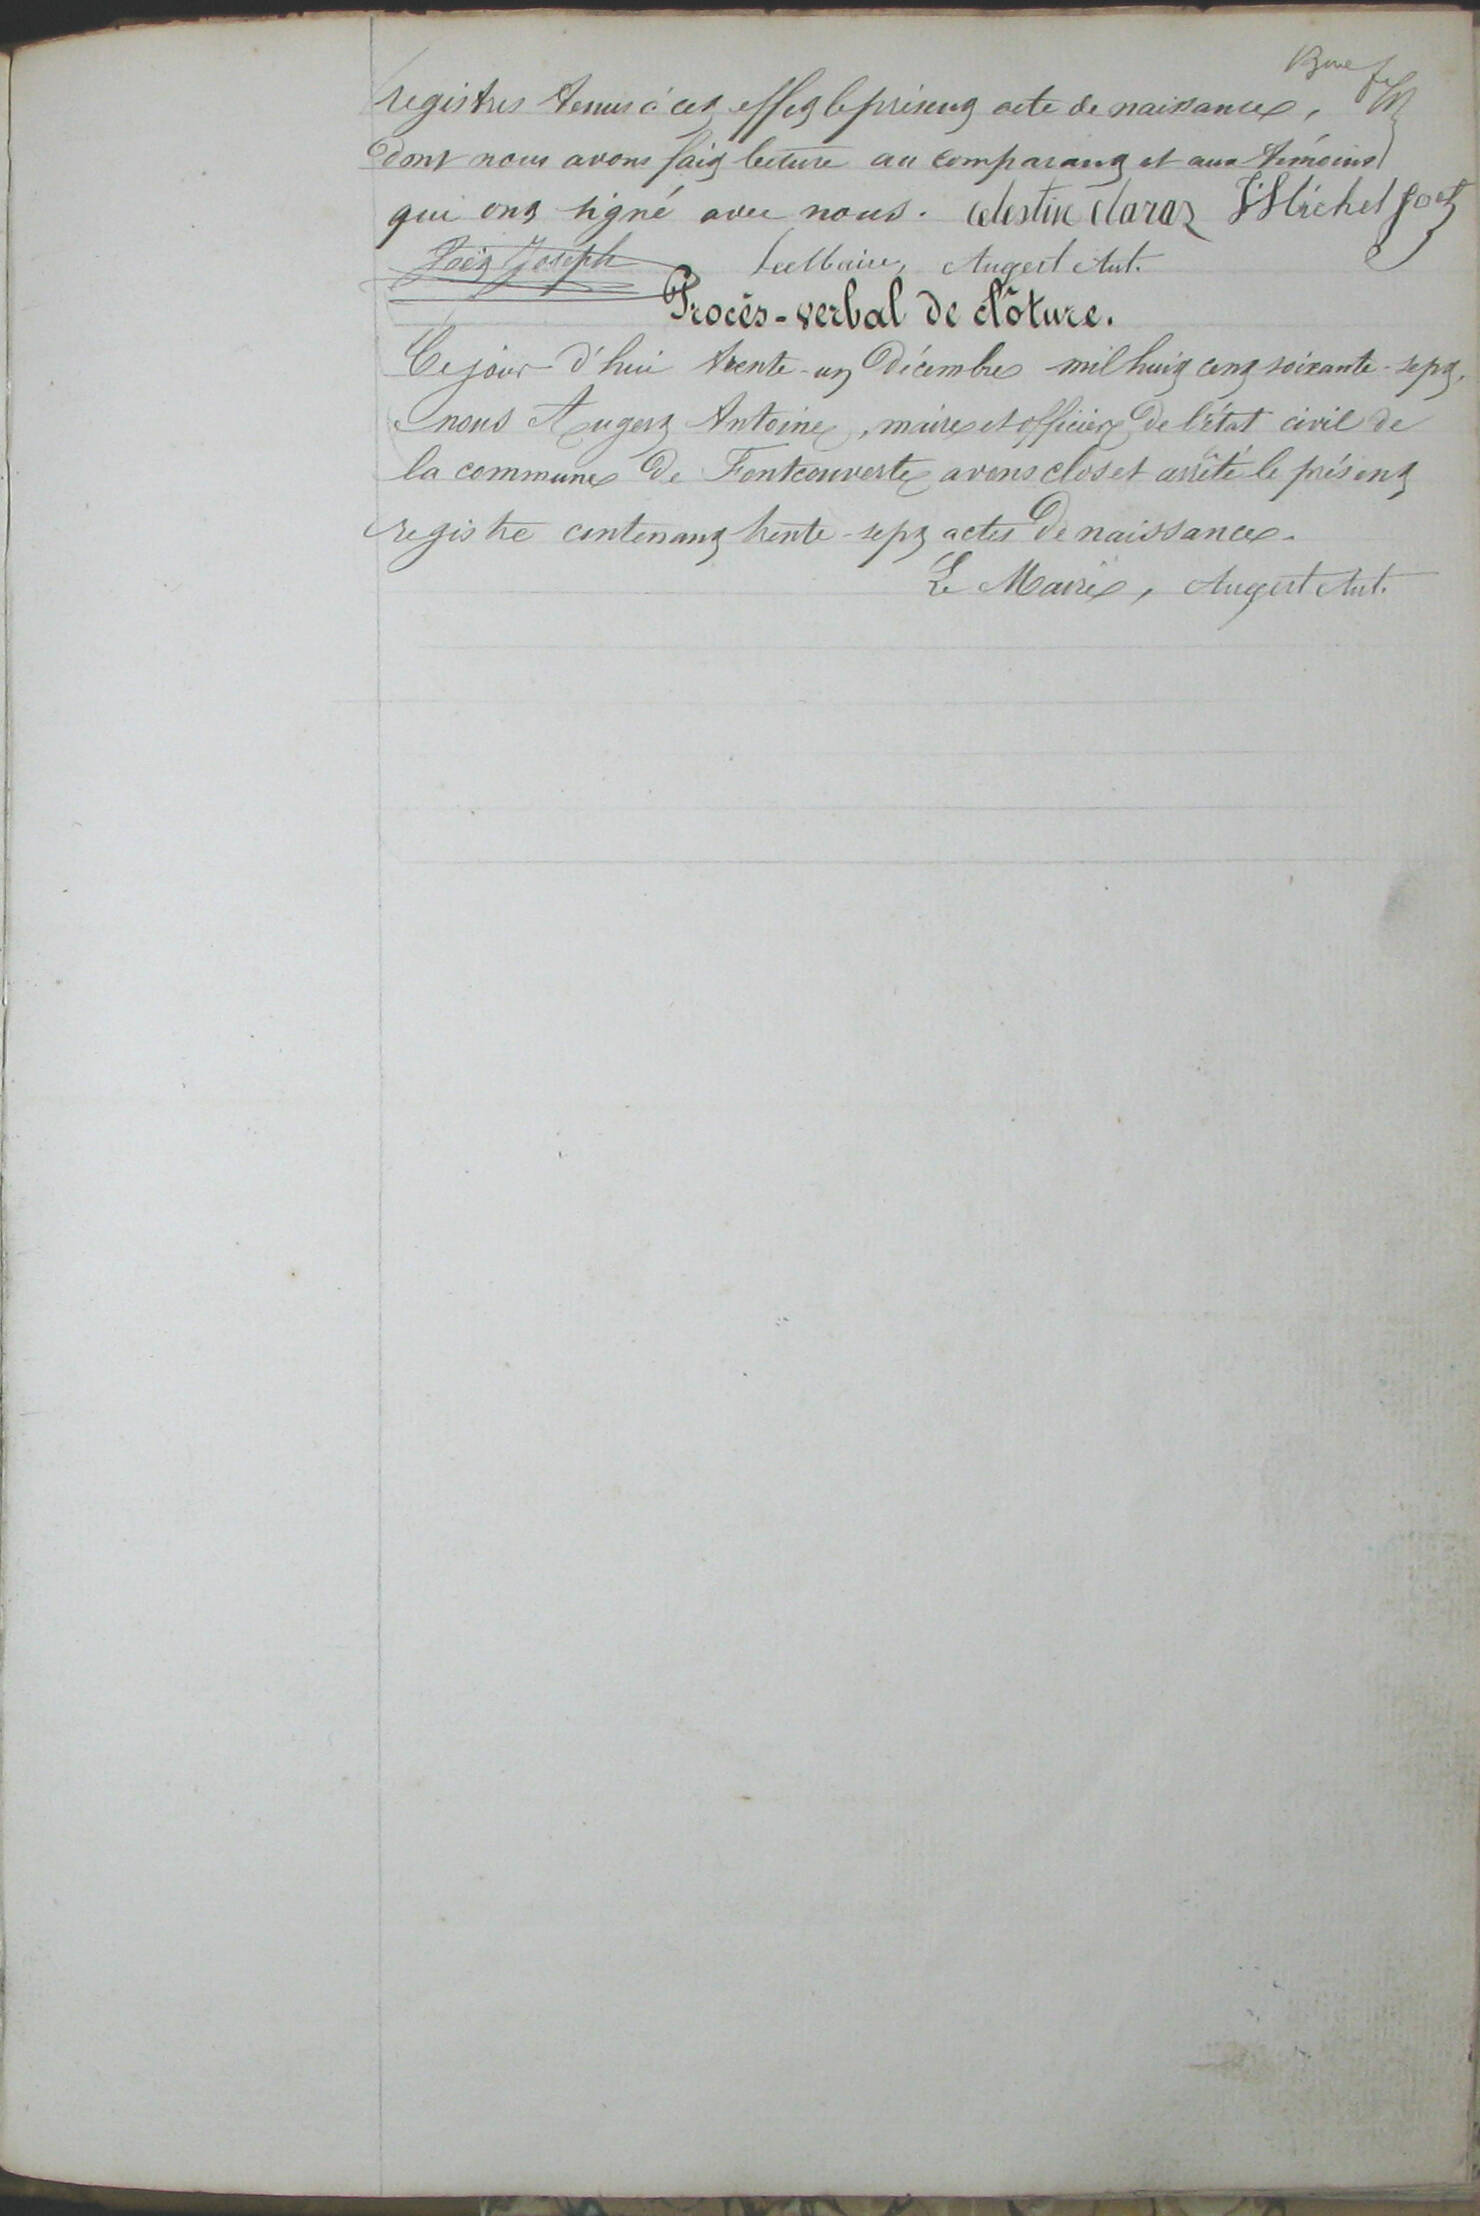 registres tenus à cet effet le présent acte de naissance,
dont nous avons fait lecture au comparant et aux témoins
qui ont signé avec nous. Celestin Claraz Michel
Joseph Le Maire, Augert Ant.
Procès-verbal de clôture.
Ce jour d'hui trente-un Décembre mil huit cent soixante-sept,
nous Augert Antoine, maire et officier de l'état civil de
la commune de Fontcouverte avons clos et arrêté le présent
registre contenant trente-sept actes de naissance.
Le Maire, Augert Ant.